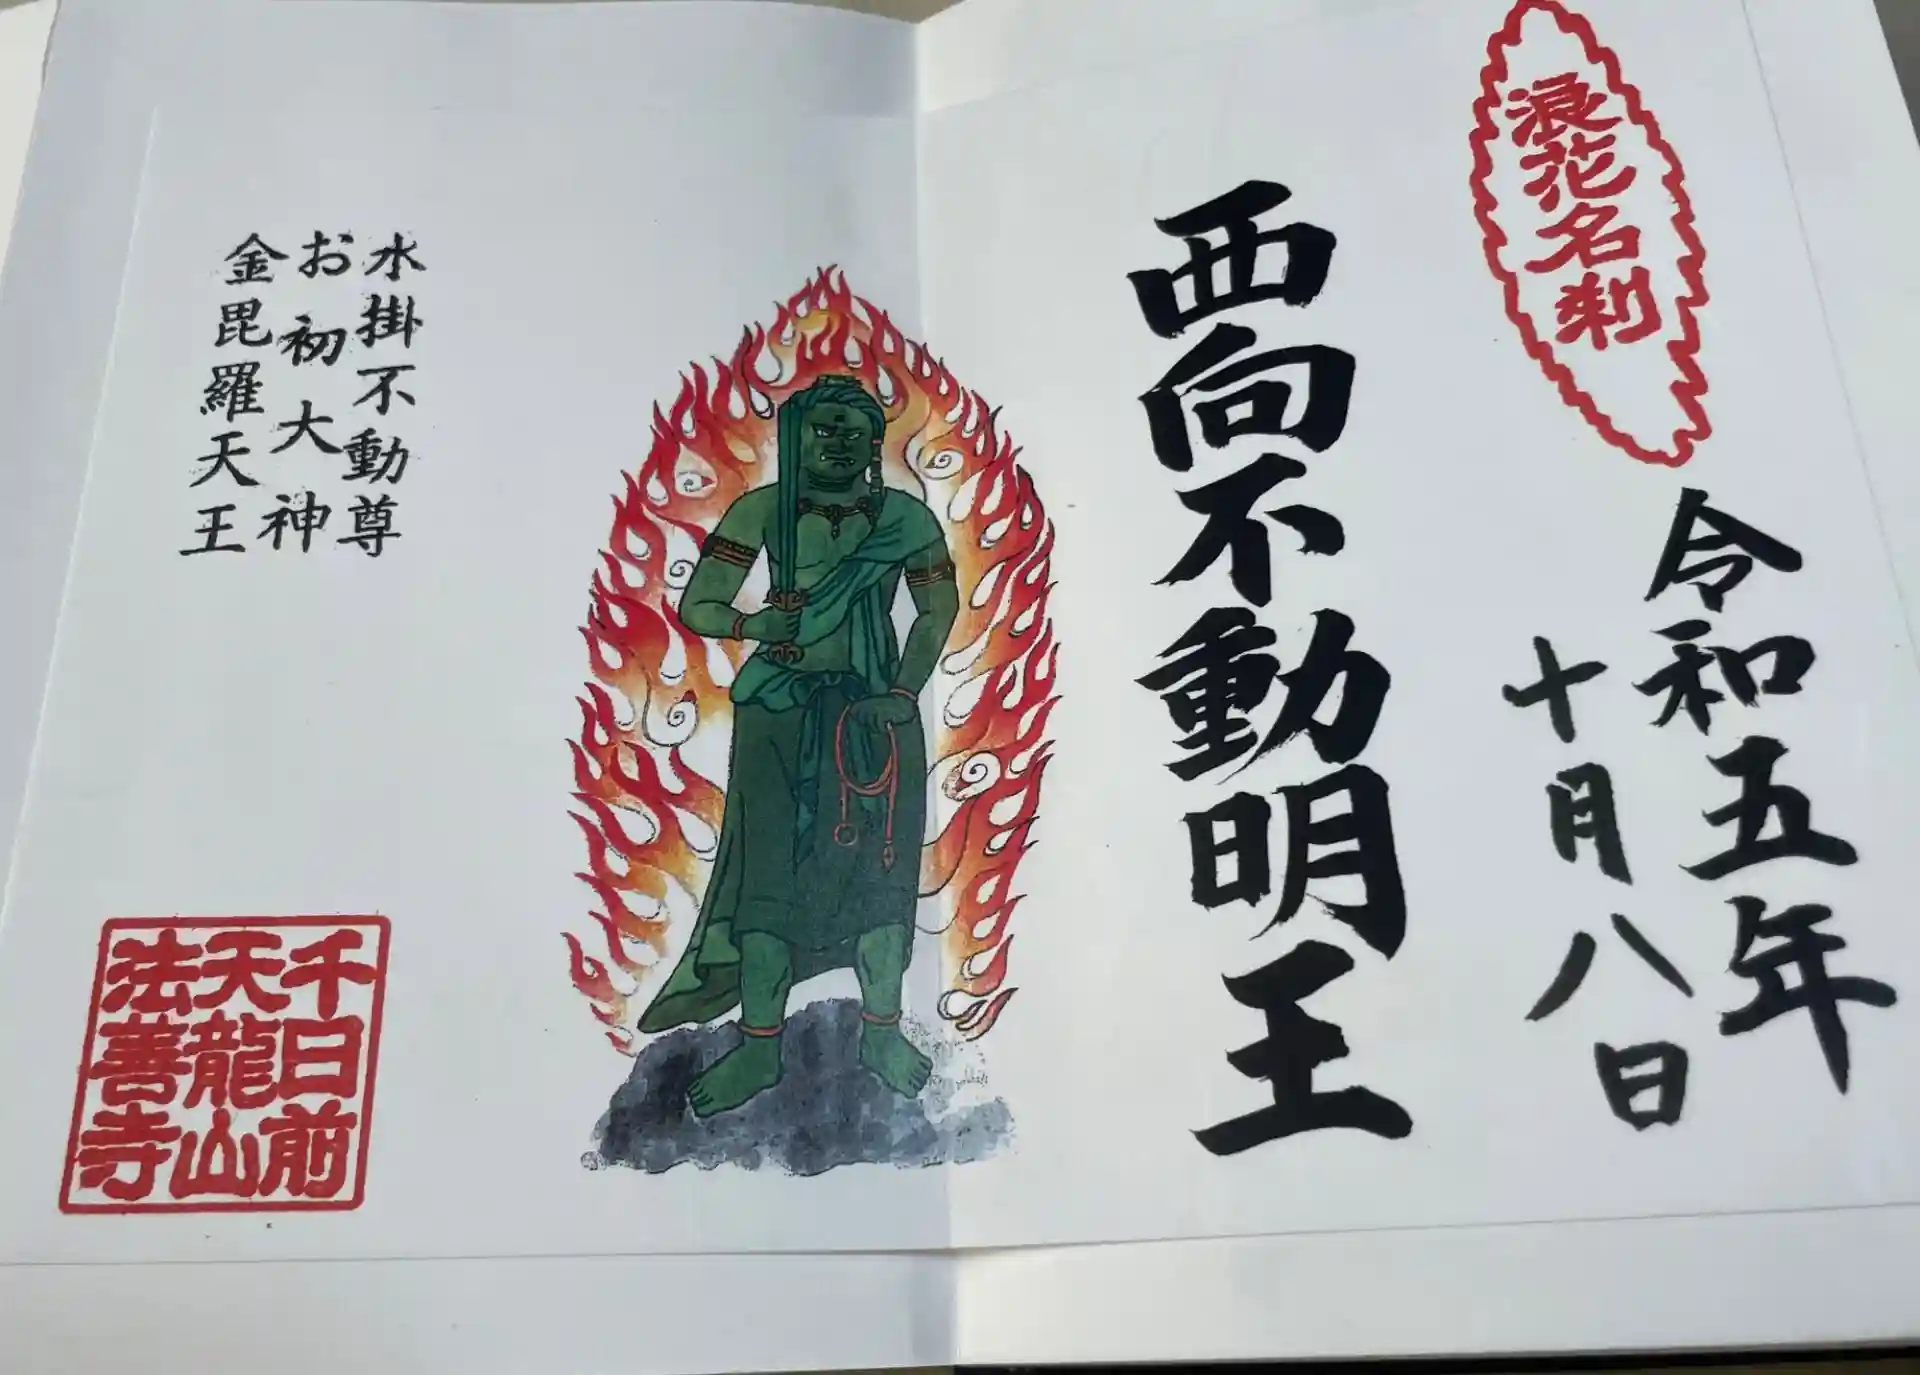 浪花名刹
令和五年
十月八日
西向不動明王
水掛不動尊
お初大神
金毘羅天王
千日前
天龍山
法善寺